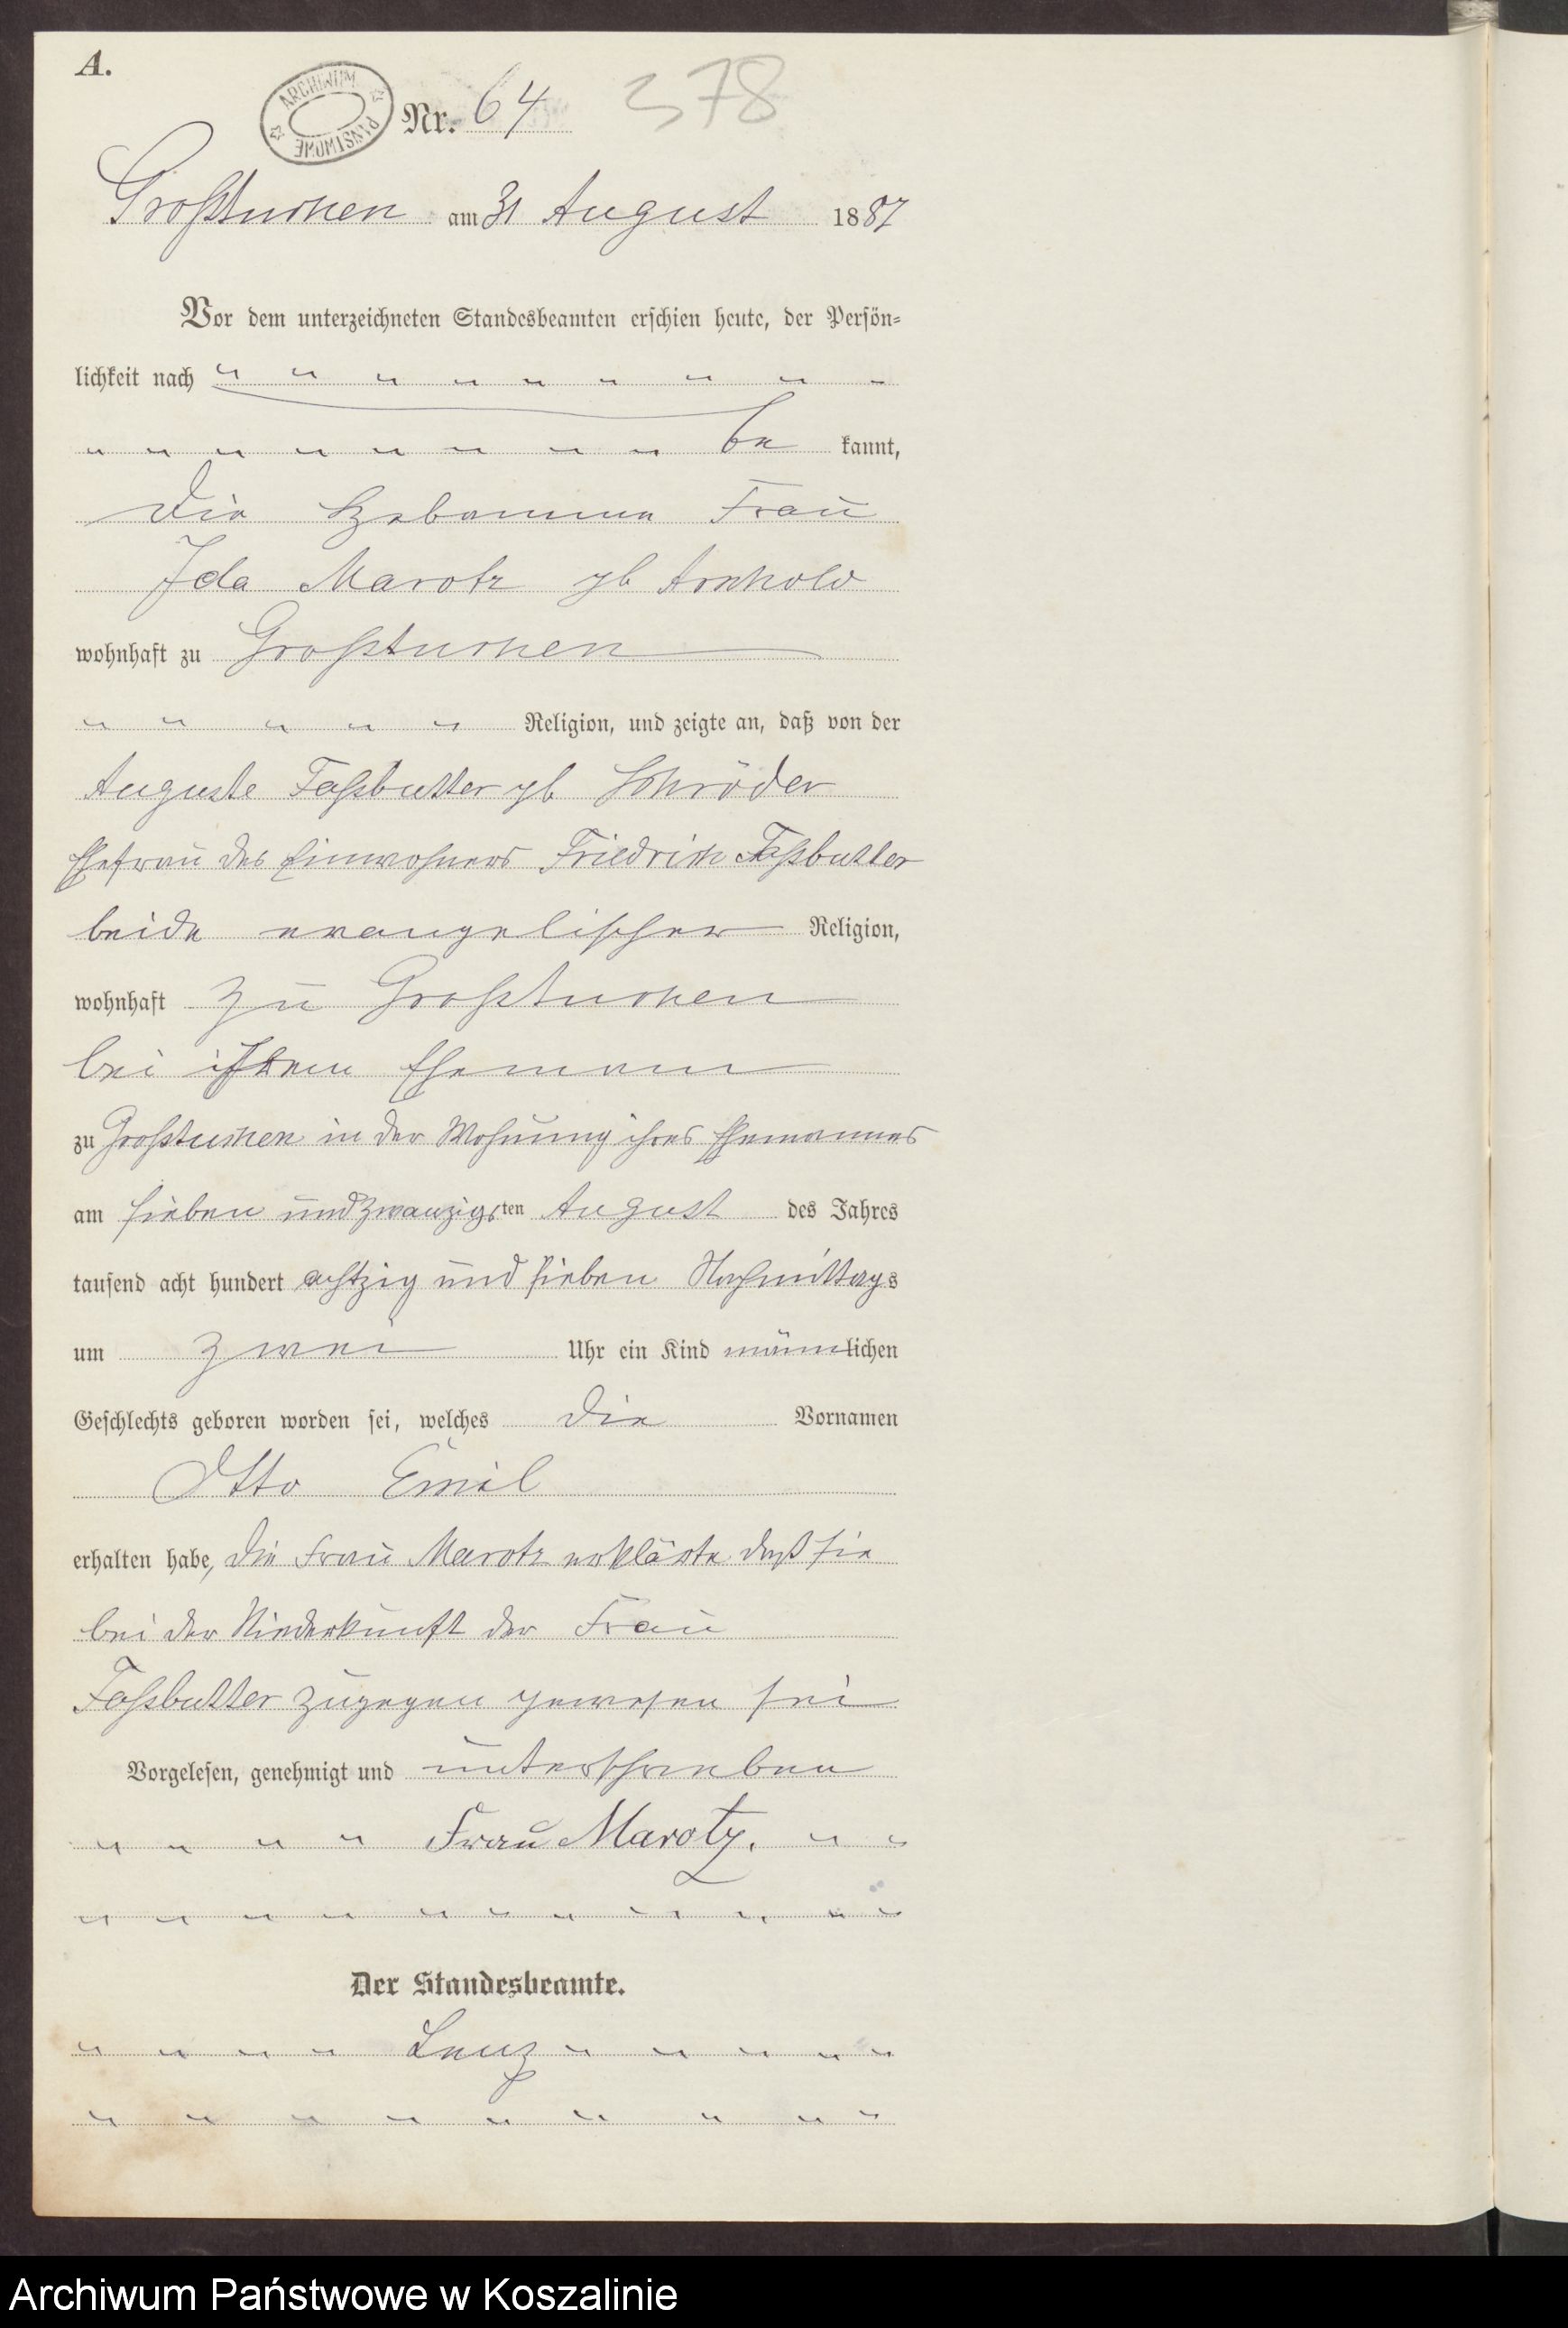 A.
ARCHIWUM PAŃSTWOWE
Nr. 64 378
Großtuchen am 31 August 1887
Vor dem unterzeichneten Standesbeamten erschien heute, der Persön-
lichkeit nach " " " " " " " " "
" " " " " " " " be kannt,
die Hebamme Frau
Ida Marotz gb Arnhold
wohnhaft zu Großtuchen
" " " " " Religion, und zeigte an, daß von der
Auguste Faßbutter gb Schröder
Ehefrau des Einwohners Friedrich Faßbutter
beide evangelischer Religion,
wohnhaft zu Großtuchen
bei ihrem Ehemann
zu Großtuchen in der Wohnung ihres Ehemannes
am sieben und zwanzigsten August des Jahres
tausend acht hundert achtzig und sieben Nachmittags
um zwei Uhr ein Kind männlichen
Geschlechts geboren worden sei, welches die Vornamen
Otto Emil
erhalten habe, die Frau Marotz erklärte daß sie
bei der Niederkunft der Frau
Faßbutter zugegen gewesen sei
Vorgelesen, genehmigt und unterschrieben
" " " " Frau Marotz. " "
" " " " " " " " " " "
Der Standesbeamte.
" " " " Lenz " " " " "
" " " " " " " " "
Archiwum Państwowe w Koszalinie